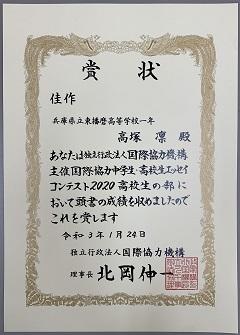 賞状
佳作
兵庫県立東播磨高等学校一年
高塚 凛 殿
あなたは独立行政法人国際協力機構
主催国際協力中学生・高校生エッセイ
コンテスト2020高校生の部に
おいて頭書の成績を収めましたので
これを賞します
令和3年1月24日
独立行政法人国際協力機構
理事長 北岡伸一